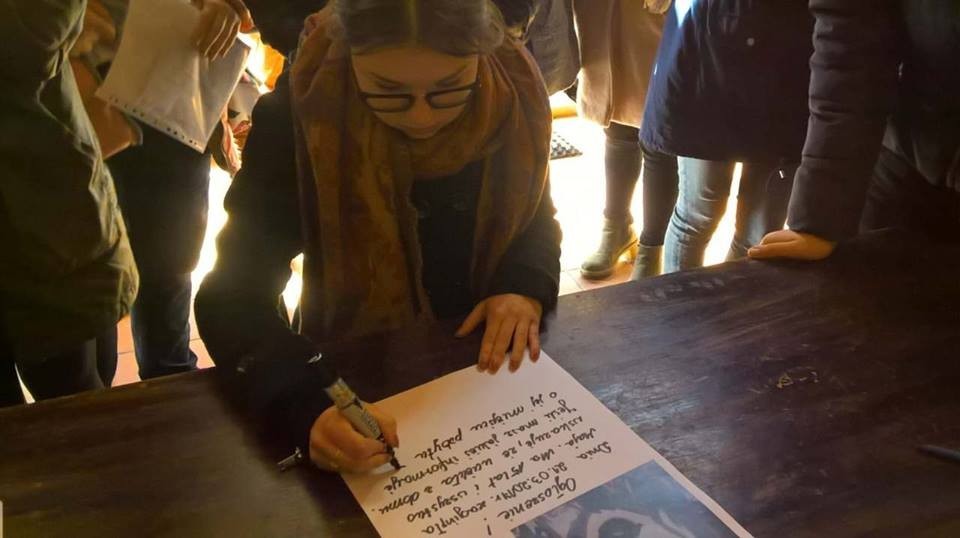 Ogłoszenie !
Dnia zaginęła
Maja. Ma 15 lat i wszystko
wskazuje, że uciekła z domu.
Jeśli masz jakieś informacje
o jej miejscu pobytu